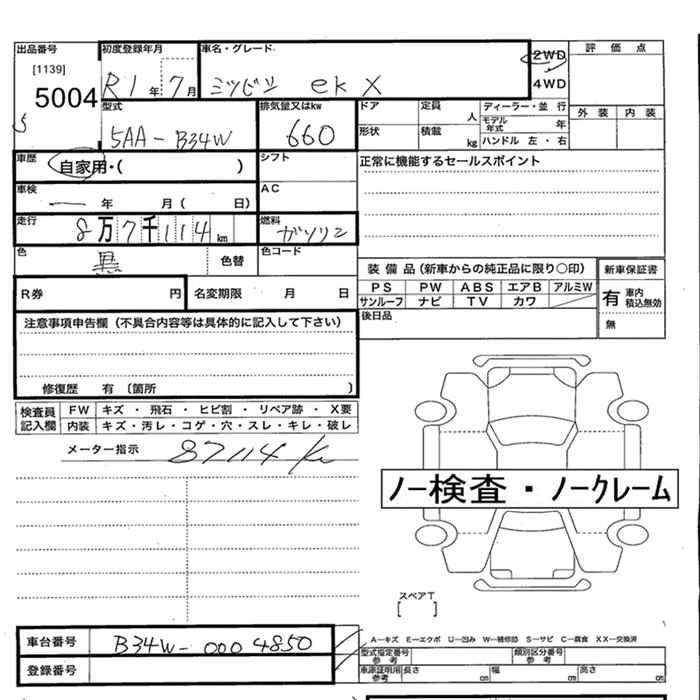 出品番号 初度登録年月 車名・グレード 2WD 評価点
[1139] R1年 7月 ミツビシ ek X 4WD
5004
型式 排気量又はkw ドア 定員 人 ディーラー・並行 外装 内装
5AA-B34W 660 形状 積載 kg モデル年式 年
ハンドル 左・右
車歴 自家用・( ) シフト 正常に機能するセールスポイント
車検 ー 年 月( 日) AC
走行 8万7千114km 燃料 ガソリン
色 黒 色替 色コード
装備品(新車からの純正品に限り〇印) 新車保証書
PS PW ABS エアB アルミW 有 車内積込無効
サンルーフ ナビ TV カワ
R券 円 名変期限 月 日 無
後日品
注意事項申告欄(不具合内容等は具体的に記入して下さい)
修復歴 有 〔箇所 〕
検査員記入欄 FW キズ・飛石・ヒビ割・リペア跡・X要
内装 キズ・汚レ・コゲ・穴・スレ・キレ・破レ
メーター指示 87114 km
ノー検査・ノークレーム
スペアT
[ ]
A―キズ E―エクボ U―凹み W―補修跡 S―サビ C―腐食 XX―交換済
車台番号 B34W-0004850
型式指定番号 参考 類別区分番号 参考
登録番号
車庫証明用 参考 長さ cm 幅 cm 高さ cm